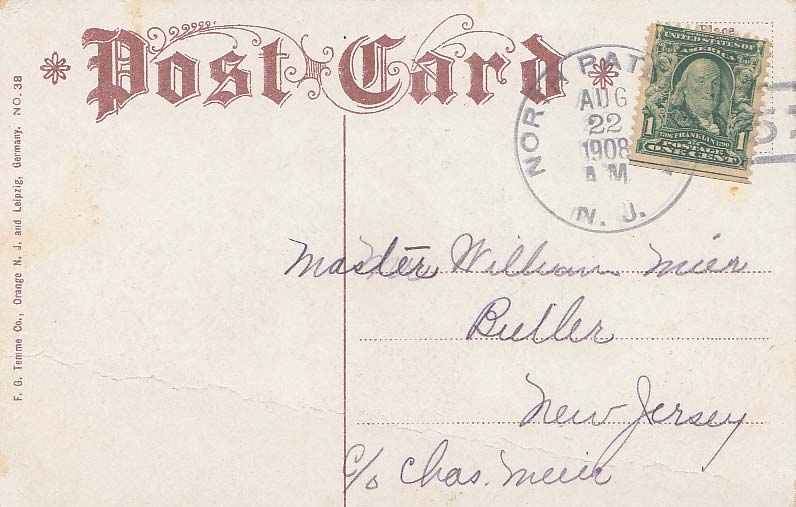 Post Card
Place
UNITED STATES OF
AMERICA
1706 FRANKLIN 1790
1 POSTAGE 1
ONE CENT
NORTH PAT
AUG
22
1908
A.M.
N. J.
Master William Mier
Butler
New Jersey
c/o Chas. Meier
F. G. Temme Co., Orange N. J. and Leipzig, Germany. NO. 38